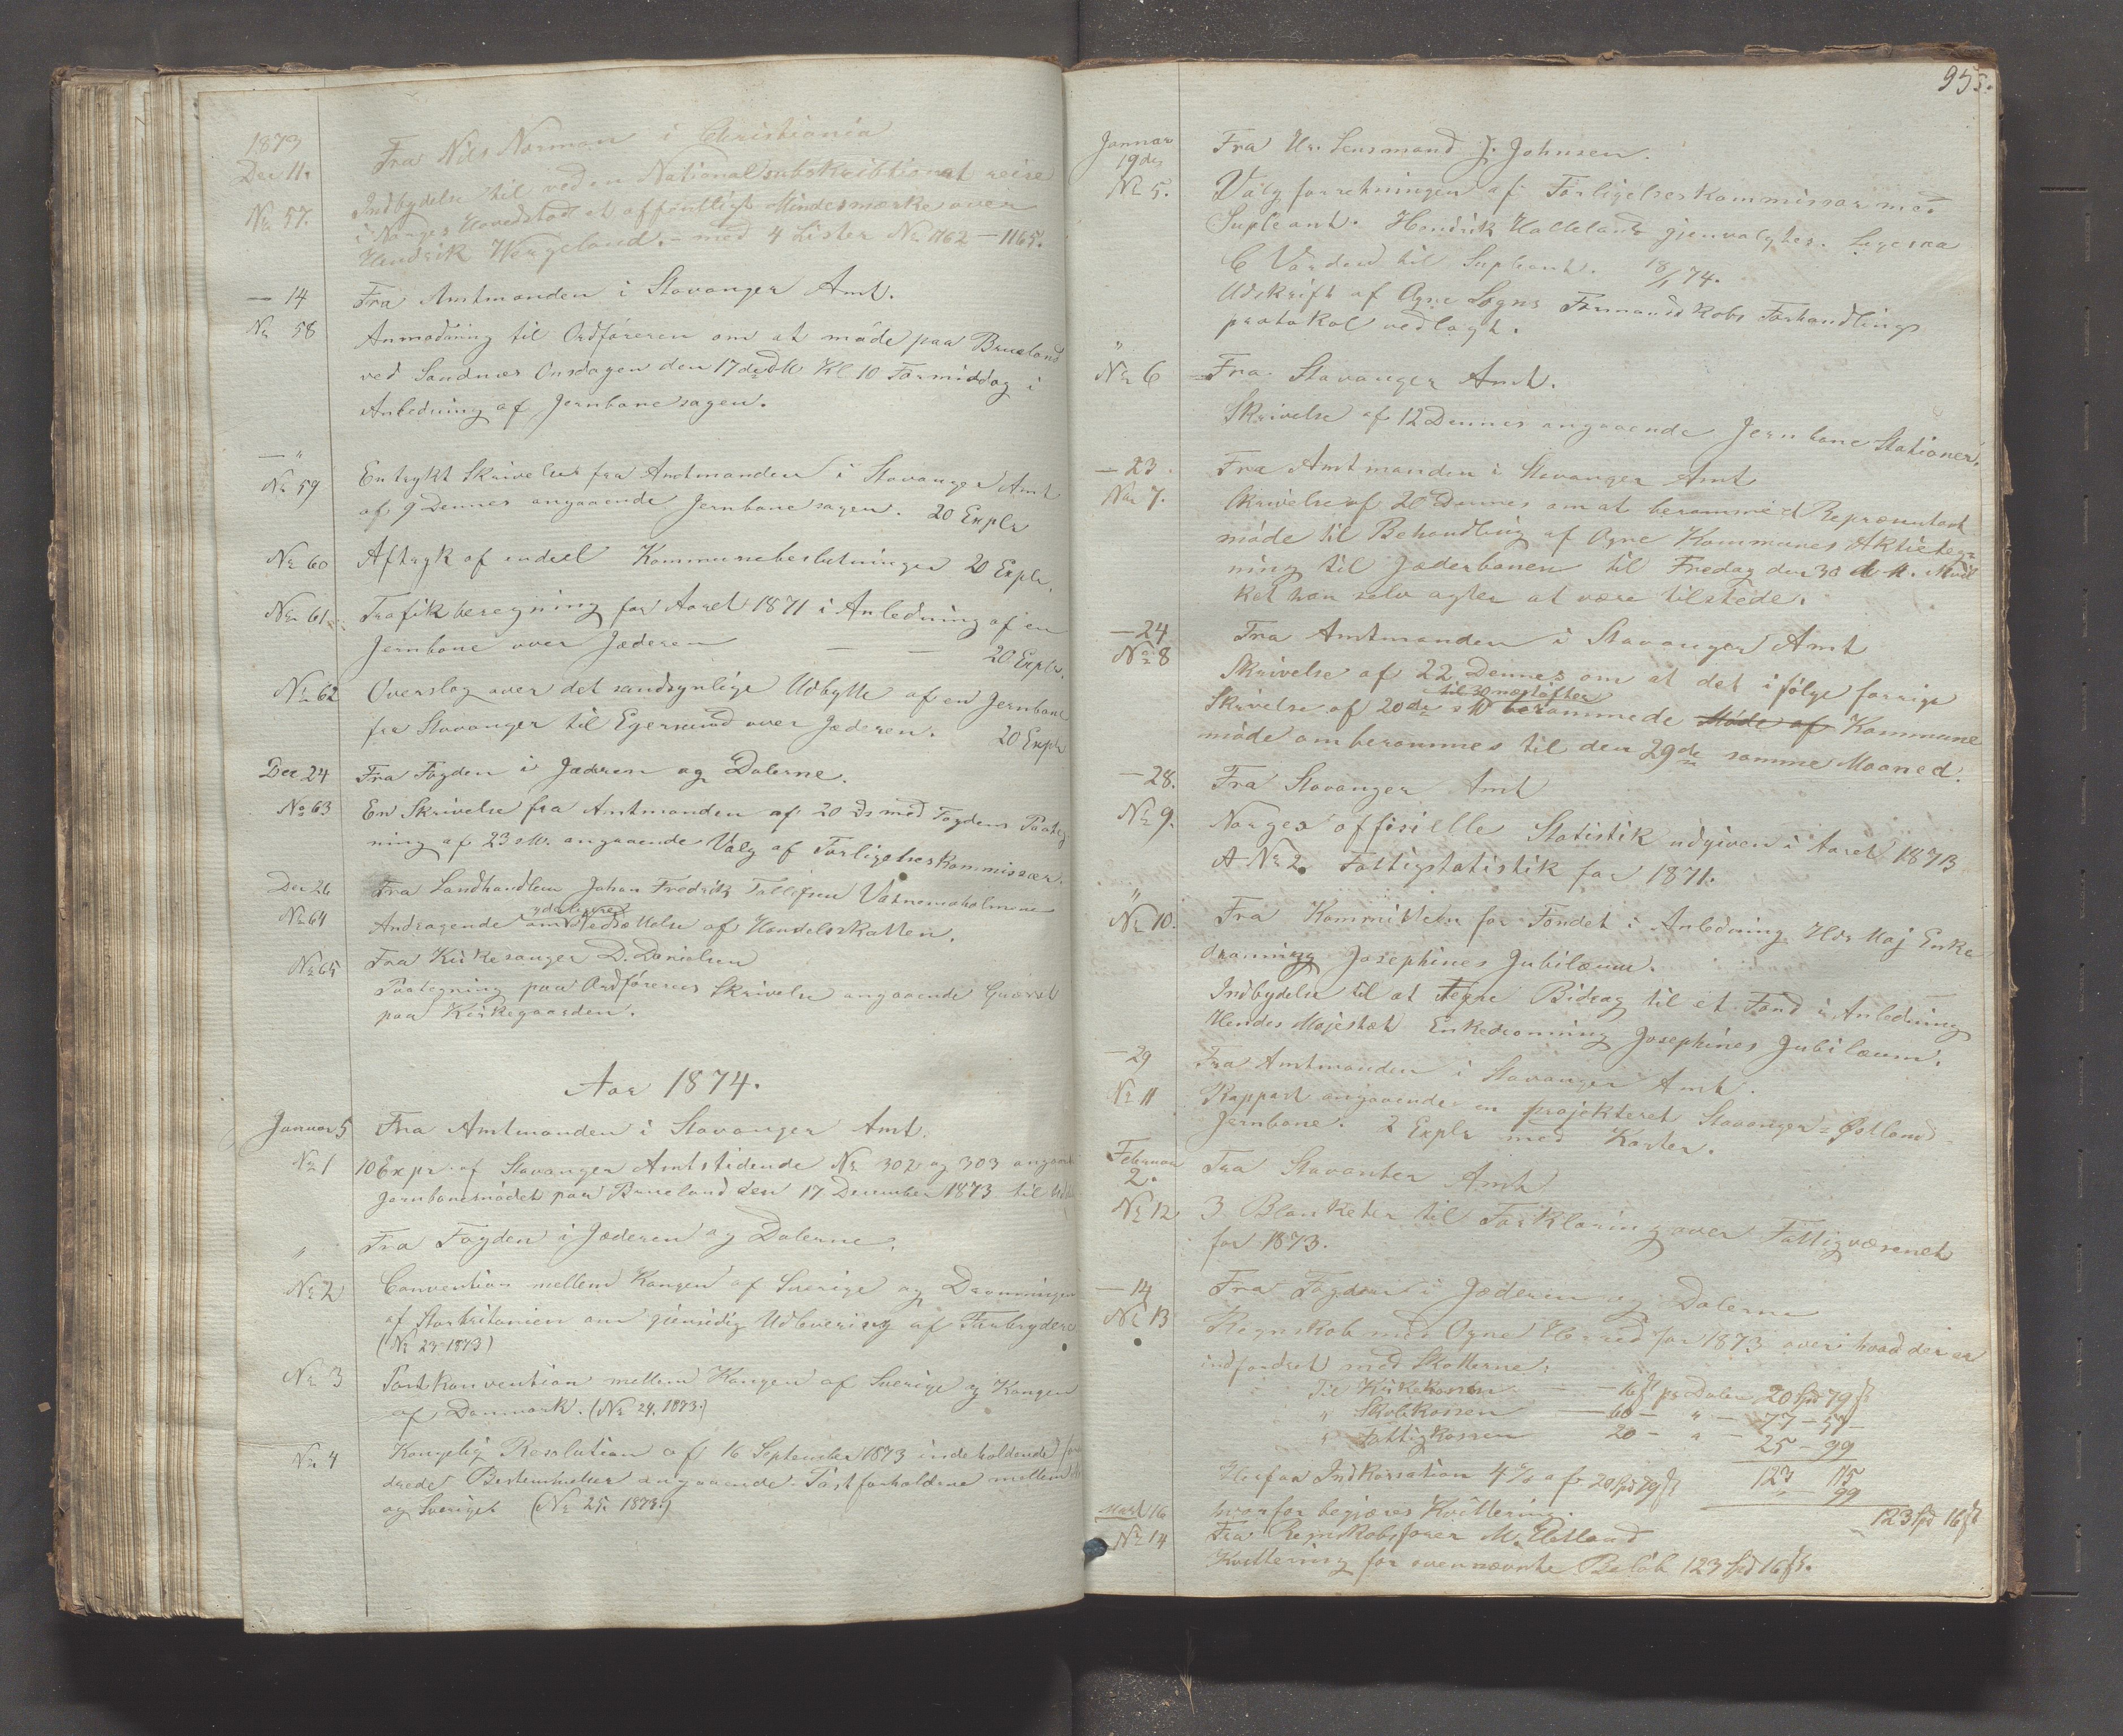 1873
Dec 11. Fra Nils Norman i Christiania
Indbydelse til ved en Nationalsubskribtion at reise
No 57. i Norges Hovedstad et offentligt Mindesmærke over
Hendrik Wergeland. – med 4 Lister No 1162 – 1165.
— 14 Fra Amtmanden i Stavanger Amt.
No 58 Anmodning til Ordføreren om at møde paa Brueland
ved Sandnes Onsdagen den 17de Kl 10 Formiddag i
Anledning af Jernbanesagen.
— "
No 59 En trykt Skrivelse fra Amtmanden i Stavanger Amt
af 9 Dennes angaaende Jernbanesagen. 20 Explr
No 60 Aftryk af endeel Kommunebeslutninger 20 Explr.
No 61 Trafikberegning for Aaret 1871 i Anledning af en
Jernbane over Jæderen — — 20 Explr.
No 62 Overslag over det sandsynlige Udbytte af en Jernbane
fra Stavanger til Egersund over Jæderen. 20 Explr
Dec 24 Fra Fogden i Jæderen og Dalerne.
No 63 En Skrivelse fra Amtmanden af 20 ds med Fogdens Paateg
ning af 23 angaaende Valg af Forligelseskommissær.
Dec 26 Fra Landhandler Johan Fredrik Tollefsen
No 64 Andragende om yderligere Nedsættelse af Handelsskatten.
No 65 Fra Kirkesanger D. Danielsen
Paategning paa Ordførerens Skrivelse angaaende Gjærdet
paa Kirkegaarden.
Aar 1874.
Januar 5 Fra Amtmanden i Stavanger Amt.
No 1 10 Expr. af Stavanger Amtstidende No 302 og 303 angaaende
Jernbanemødet paa Brueland den 17 December 1873 til
" Fra Fogden i Jæderen og Dalerne.
No 2 Convention mellem Kongen af Sverige og Dronningen
af Storbritanien om gjensidig Udlevering af Forbrydere
(No 23 1873)
No 3 Postkonvention mellem Kongen af Sverige og Kongen
af Danmark. (No 24. 1873.)
No 4 Kongelig Resolution af 16 September 1873 indeholdende
Bestemmelser angaaende Postforholdene mellem
og Sverige (No 25. 1873.)
95 5.
Januar
19de Fra Hr. Lensmand J. Johnsen.
No 5. Valgforretningen af Forligelseskommissær med
Supleant. Hendrik Halleland gjenvalgtes. Ligesaa
C Varden til Supleant. 18/1 74.
Udskrift af Ogne Sogns Formandskabs Forhandlings
protokol vedlagt.
"
No 6 Fra Stavanger Amt.
Skrivelse af 12 Dennes angaaende Jernbane Stationer.
— 23. Fra Amtmanden i Stavanger Amt
No 7. Skrivelse af 20 Dennes om at beramme et Repræsentant
møde til Behandling af Ogne Kommunes Aktieteg=
ning til Jæderbanen til Fredag den 30 d. M. Hvil
ket han selv agter at være tilstede.
— 24 Fra Amtmanden i Stavanger Amt
No 8 Skrivelse af 22 Dennes om at det ifølge forrige
til 30 næstefter
Skrivelse af 20de berammede Møde af Kommune
møde omberammes til den 29de samme Maaned.
— 28. Fra Stavanger Amt
No 9. Norges offisielle Statistik udgiven i Aaret 1873
A No 2. Fattigstatistik for 1871.
"
No 10. Fra Kommitteen for Fondet i Anledning Hds Maj Enke
dronning Josephines Jubilæum.
Indbydelse til at tegne Bidrag til et Fond i Anledning
Hendes Majestæt Enkedronning Josephines Jubilæum.
— 29 Fra Amtmanden i Stavanger Amt.
No 11 Rapport angaaende en projekteret Stavanger=Østland
Jernbane. 2 Explr med Karter.
Februar
2. Fra Stavanter Amt
No 12 3 Blanketer til Forklaring over Fattigvæsenet
for 1873.
— 14 Fra Fogden i Jæderen og Dalerne
No 13 Regnskab med Ogne Herred for 1873 over hvad der er
indfordret med Skatterne:
Til Kirkekassen — 16 ß pr Daler 20 Spd 79 ß
" Skolekassen — 60 – " – 77 – 57 –
" Fattigkassen 20 – " – 25 – 99
Herfor Indkassation 4 % af 20 Spd 79 ß 123 115
99
hvorfor begjæres Kvittering. 123 Spd 16 ß
Mart 16
No 14 Fra Regnskabsfører M. Hetland
Kvittering for ovennævnte Beløb 123 Spd 16 ß.